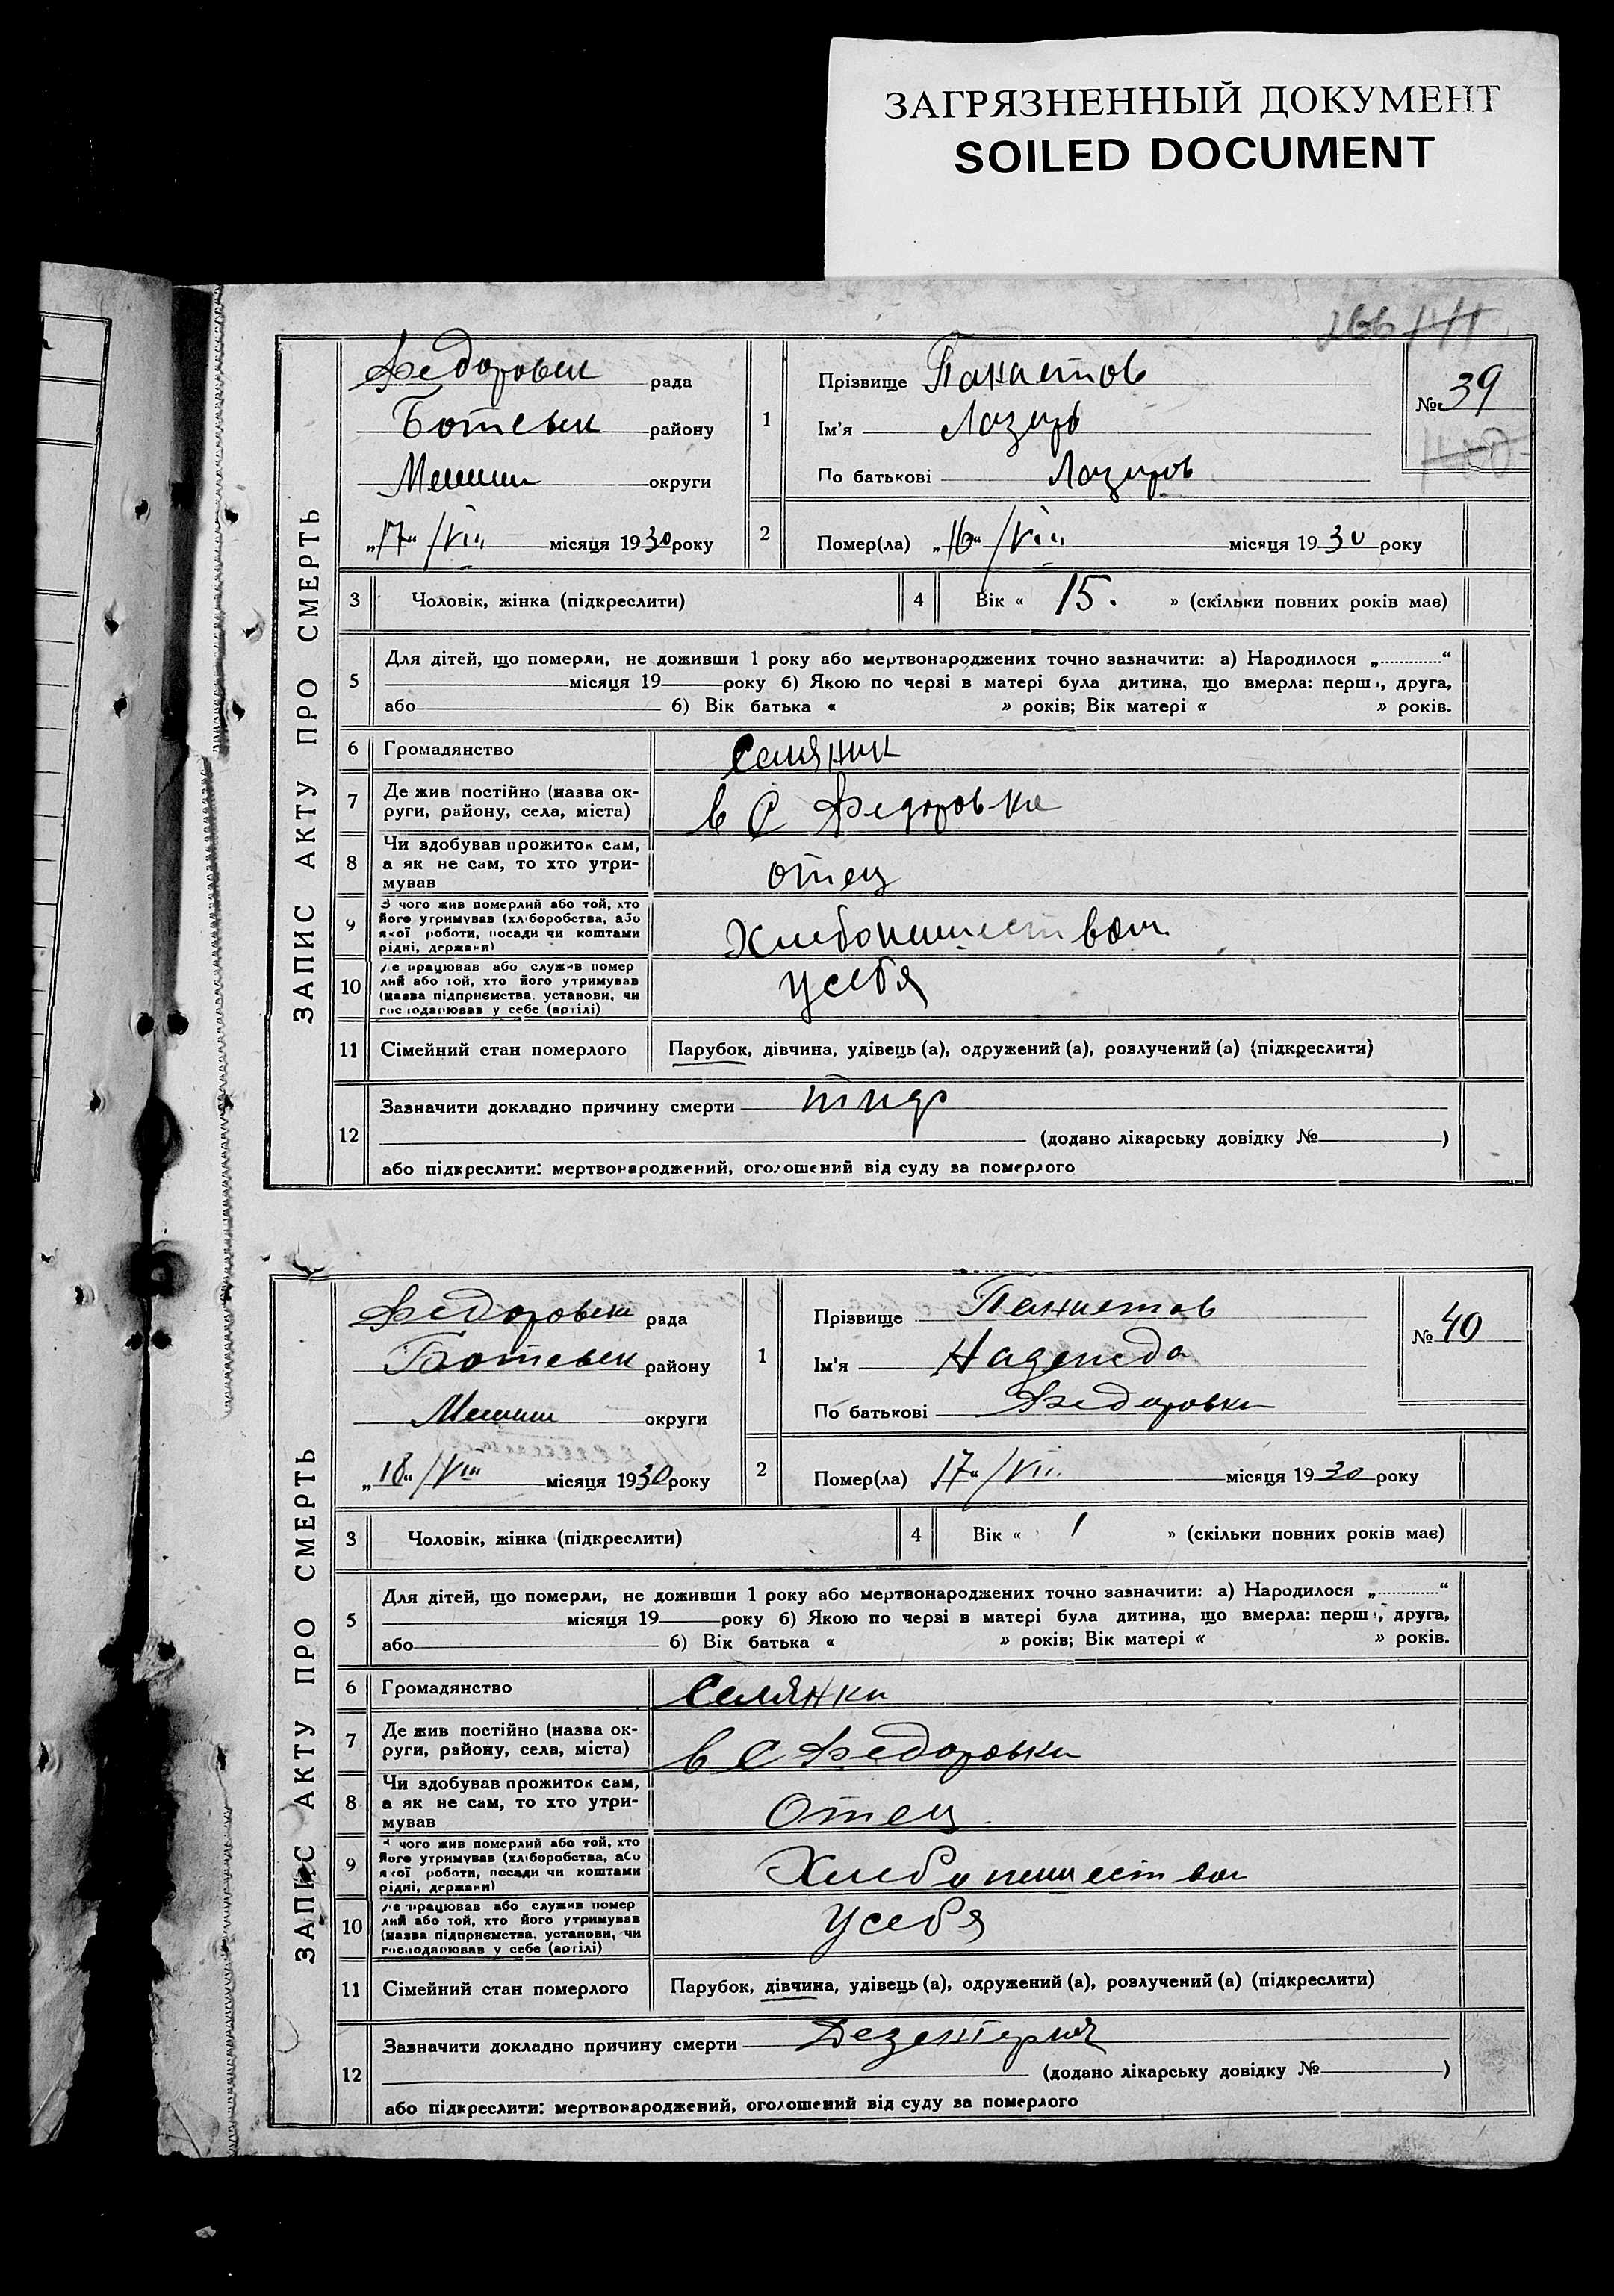 ЗАГРЯЗНЕННЫЙ ДОКУМЕНТ
SOILED DOCUMENT
ЗАПИС АКТУ ПРО СМЕРТЬ
Федоровськ рада
Ботевськ району
округи
„17“ /VIII місяця 1930 року
1
Прізвище Панаетов
Ім’я Лазарь
По батькові Лазаров
№ 39
2
Помер(ла) „16“ /VIII місяця 1930 року
3 Чоловік, жінка (підкреслити)
4 Вік « 15. » (скільки повних років має)
5 Для дітей, що померли, не доживши 1 року або мертвонароджених точно зазначити: а) Народилося „............“
місяця 19 року б) Якою по черзі в матері була дитина, що вмерла: перша, друга,
або б) Вік батька « » років; Вік матері « » років.
6 Громадянство Селянин
7 Де жив постійно (назва ок-
руги, району, села, міста) в С Федоровке
8 Чи здобував прожиток сам,
а як не сам, то хто утри-
мував отец
9 З чого жив померлий або той, хто
його утримував (хліборобства, або
якої роботи, посади чи коштами
рідні, держави) Хлебопашеством
10 Де працював або служив помер
лий або той, хто його утримував
(назва підприємства, установи, чи
господарював у себе (артілі) у себя
11 Сімейний стан померлого Парубок, дівчина, удівець (а), одружений (а), розлучений (а) (підкреслити)
12 Зазначити докладно причину смерти тиф
(додано лікарську довідку № )
або підкреслити: мертвонароджений, оголошений від суду за померлого
ЗАПИС АКТУ ПРО СМЕРТЬ
Федоровськ рада
Ботевськ району
округи
„18“ /VIII місяця 1930 року
1
Прізвище Панаетов
Ім’я Надежда
По батькові Федоровна
№ 40
2
Помер(ла) 17“ /VIII місяця 1930 року
3 Чоловік, жінка (підкреслити)
4 Вік « 1 » (скільки повних років має)
5 Для дітей, що померли, не доживши 1 року або мертвонароджених точно зазначити: а) Народилося „............“
місяця 19 року б) Якою по черзі в матері була дитина, що вмерла: перша, друга,
або б) Вік батька « » років; Вік матері « » років.
6 Громадянство Селянка
7 Де жив постійно (назва ок-
руги, району, села, міста) в С Федоровки
8 Чи здобував прожиток сам,
а як не сам, то хто утри-
мував Отец
9 З чого жив померлий або той, хто
його утримував (хліборобства, або
якої роботи, посади чи коштами
рідні, держави) Хлебопашеством
10 Де працював або служив помер
лий або той, хто його утримував
(назва підприємства, установи, чи
господарював у себе (артілі) у себя
11 Сімейний стан померлого Парубок, дівчина, удівець (а), одружений (а), розлучений (а) (підкреслити)
12 Зазначити докладно причину смерти Дезентерия
(додано лікарську довідку № )
або підкреслити: мертвонароджений, оголошений від суду за померлого